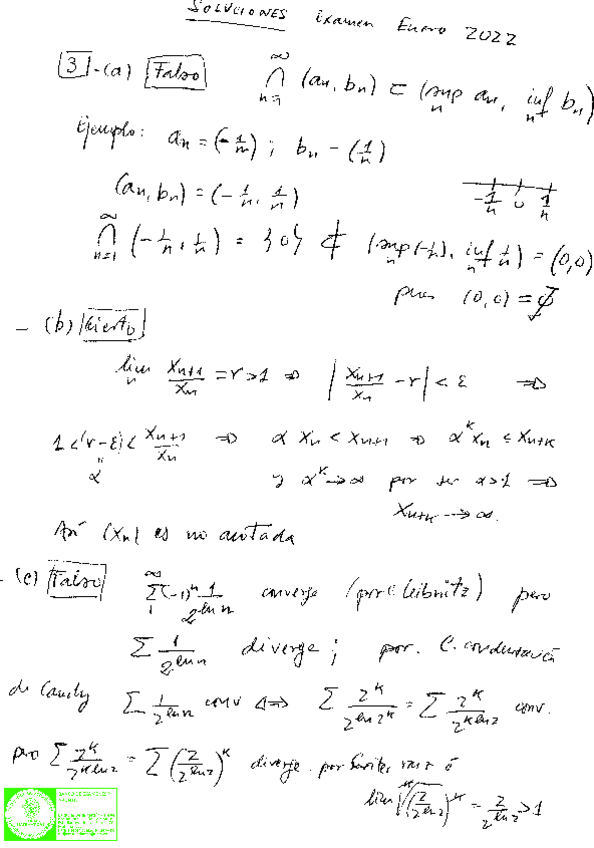 SOLUCIONES Examen Enero 2022
3 -(a) Falso ∞⋂n=1 (an, bn) ⊂ (sup_n an, inf_n bn)
Ejemplo: an = (-1/n) ; bn - (1/n)
(an, bn) = (-1/n, 1/n) -1/n 0 1/n
∞⋂n=1 (-1/n, 1/n) = {0} ⊄ (sup_n (-1/n), inf_n 1/n) = (0,0)
pues (0,0) = ∅
- (b) Cierto
lim_n xn+1/xn = r > 1 ⇒ | xn+1/xn - r | < ε ⇒
1 < (r-ε) < xn+1/xn ⇒ α xn < xn+1 ⇒ α^k xn ≤ xn+k
" α y α^k → ∞ por ser α>1 ⇒
xn+k → ∞.
Así (xn) es no acotada
- (c) Falso ∞Σ1 (-1)^n 1/2^ln n converge (por C Leibnitz) pero
Σ 1/2^ln n diverge ; por. C. condensación
de Cauchy Σ 1/2^ln n conv ⇔ Σ 2^k/2^ln 2^k = Σ 2^k/2^k ln 2 conv.
pero Σ 2^k/2^k ln 2 = Σ (2/2^ln 2)^k diverge por
lim k√(2/2^ln 2)^k = 2/2^ln 2 > 1